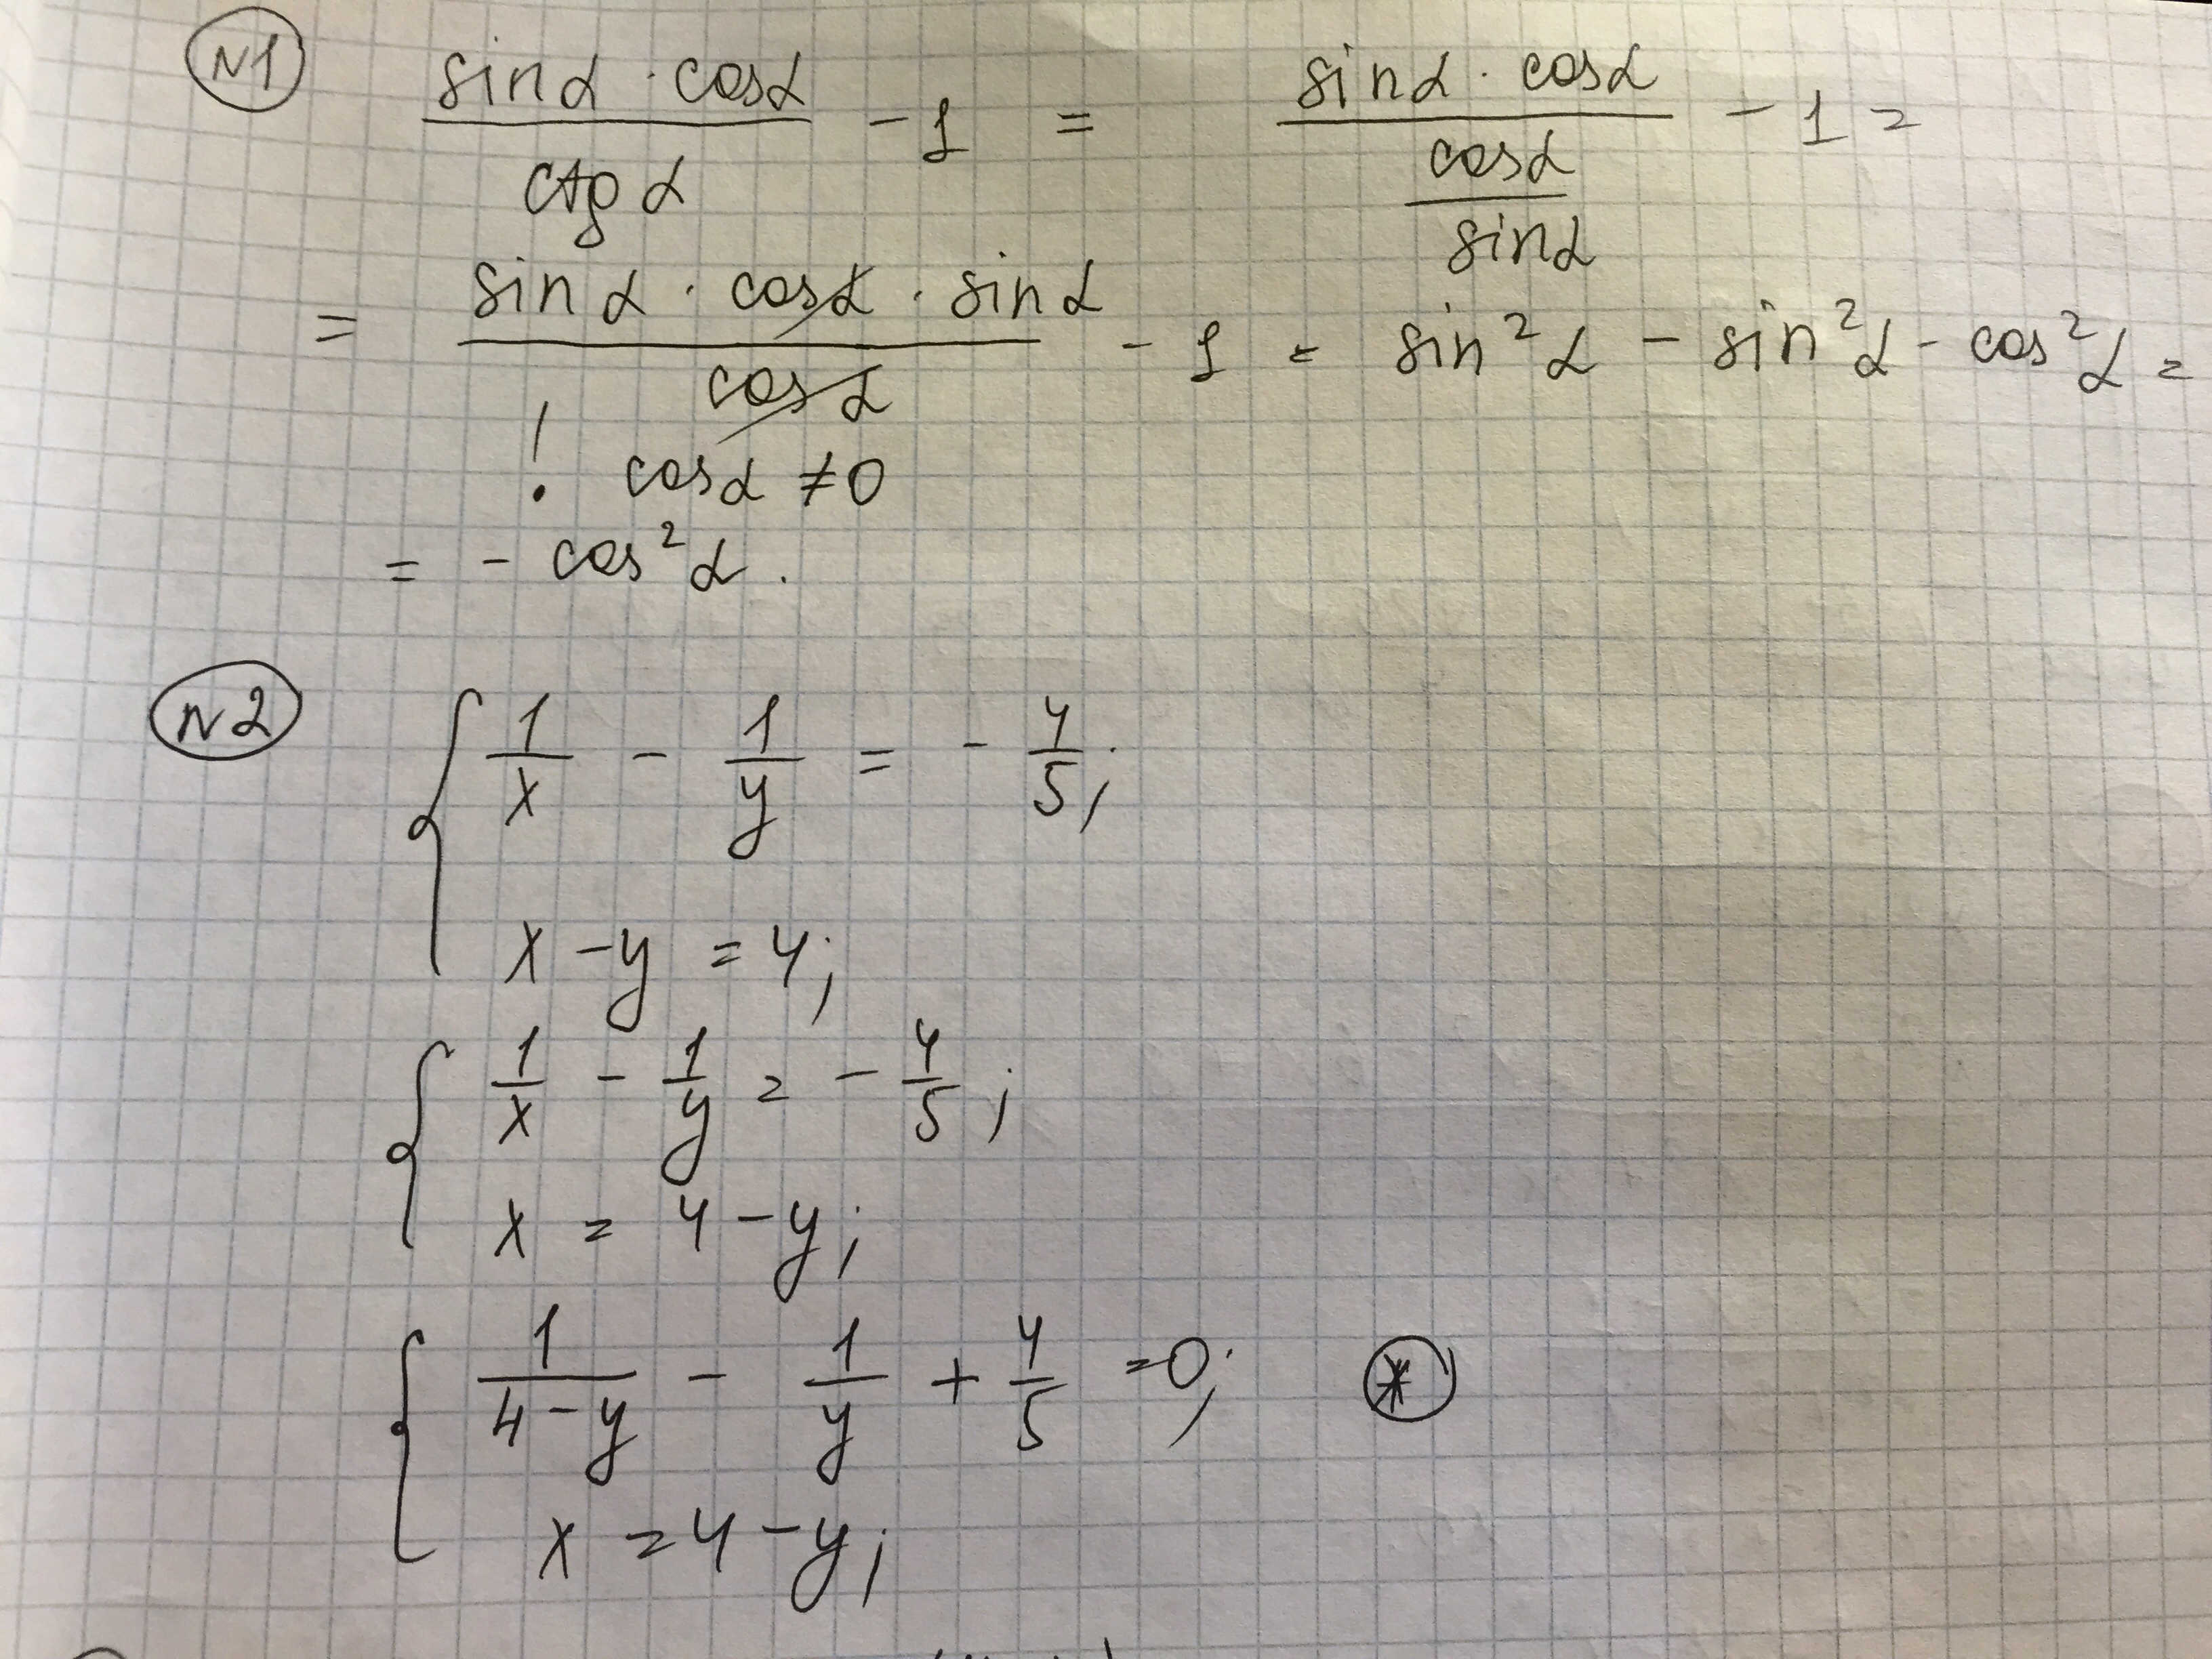 N1 (sinα · cosα)/(ctgα) - 1 = (sinα · cosα)/(cosα/sinα) - 1 =
= (sinα · cosα · sinα)/(cosα) - 1 = sin²α - sin²α - cos²α =
! cosα ≠ 0
= - cos²α.
N2 { 1/x - 1/y = - 4/5;
x - y = 4;
{ 1/x - 1/y = - 4/5;
x = 4 - y;
{ 1/(4-y) - 1/y + 4/5 = 0; *
x = 4 - y;